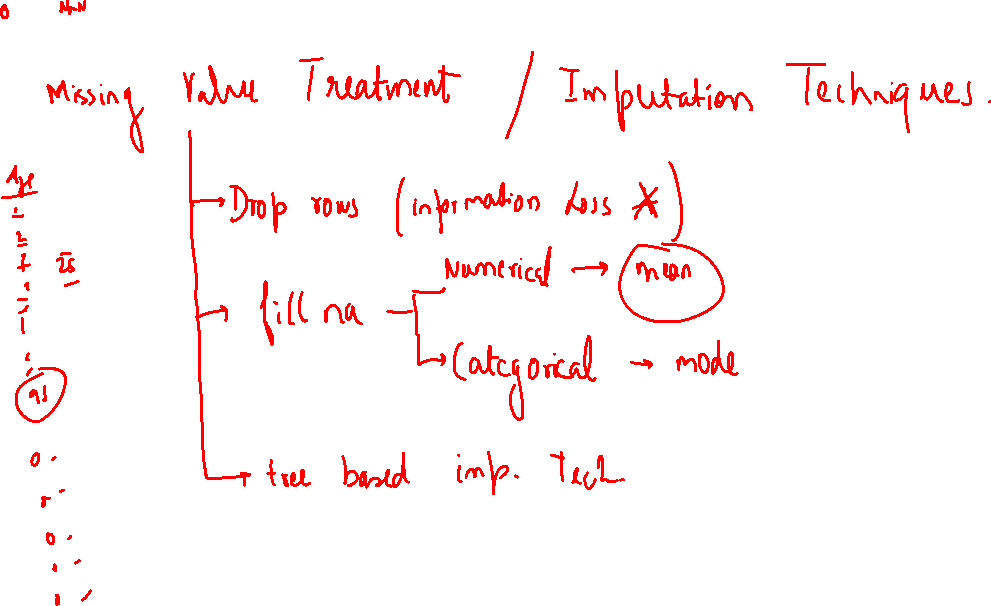 Missing Value Treatment / Imputation Techniques.
Age
Drop rows (information Loss X)
25
Numerical → mean
fill na
Categorical → mode
95
tree based imp. Tech